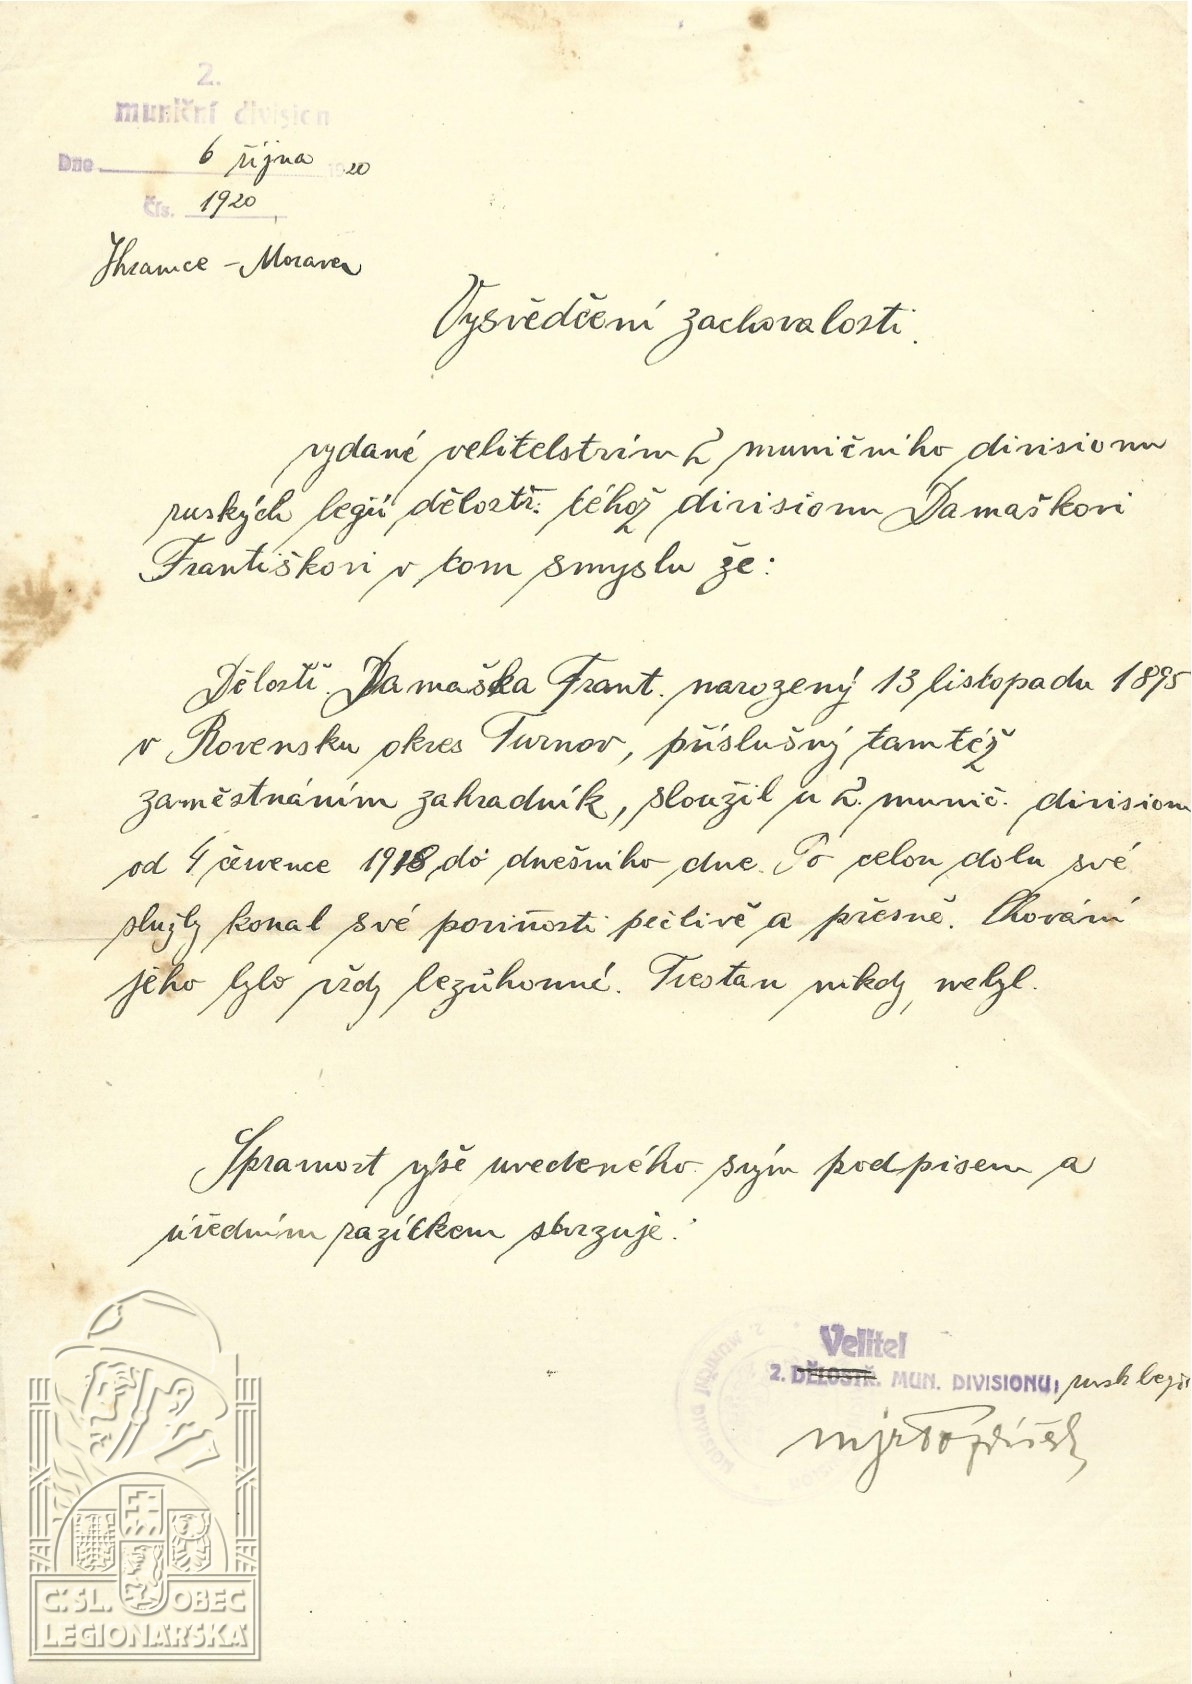 2.
muniční division
Dne 6 října 1920
Čís. 1920
Hranice – Morava
Vysvědčení zachovalosti.
vydané velitelstvím 2 muničního divisionu
ruských legií dělostř. téhož divisionu Damaškovi
Františkovi v tom smyslu že:
Dělostř. Damaška Frant. narozený 13 listopadu 1895
v Rovensku okres Turnov, příslušný tamtéž
zaměstnáním zahradník, sloužil u 2. munič. divisionu
od 4 července 1918 do dnešního dne. Po celou dobu své
služby konal své povinosti pečlivě a přesně. Chování
jeho bylo vždy bezúhonné. Trestán nikdy nebyl.
Spravnost výše uvedeného svým podpisem a
úředním razítkem stvrzuje:
Velitel
2. DĚLOSTŘ. MUN. DIVISIONU, rusk legií
mjr
Č. SL. OBEC
LEGIONÁŘSKÁ